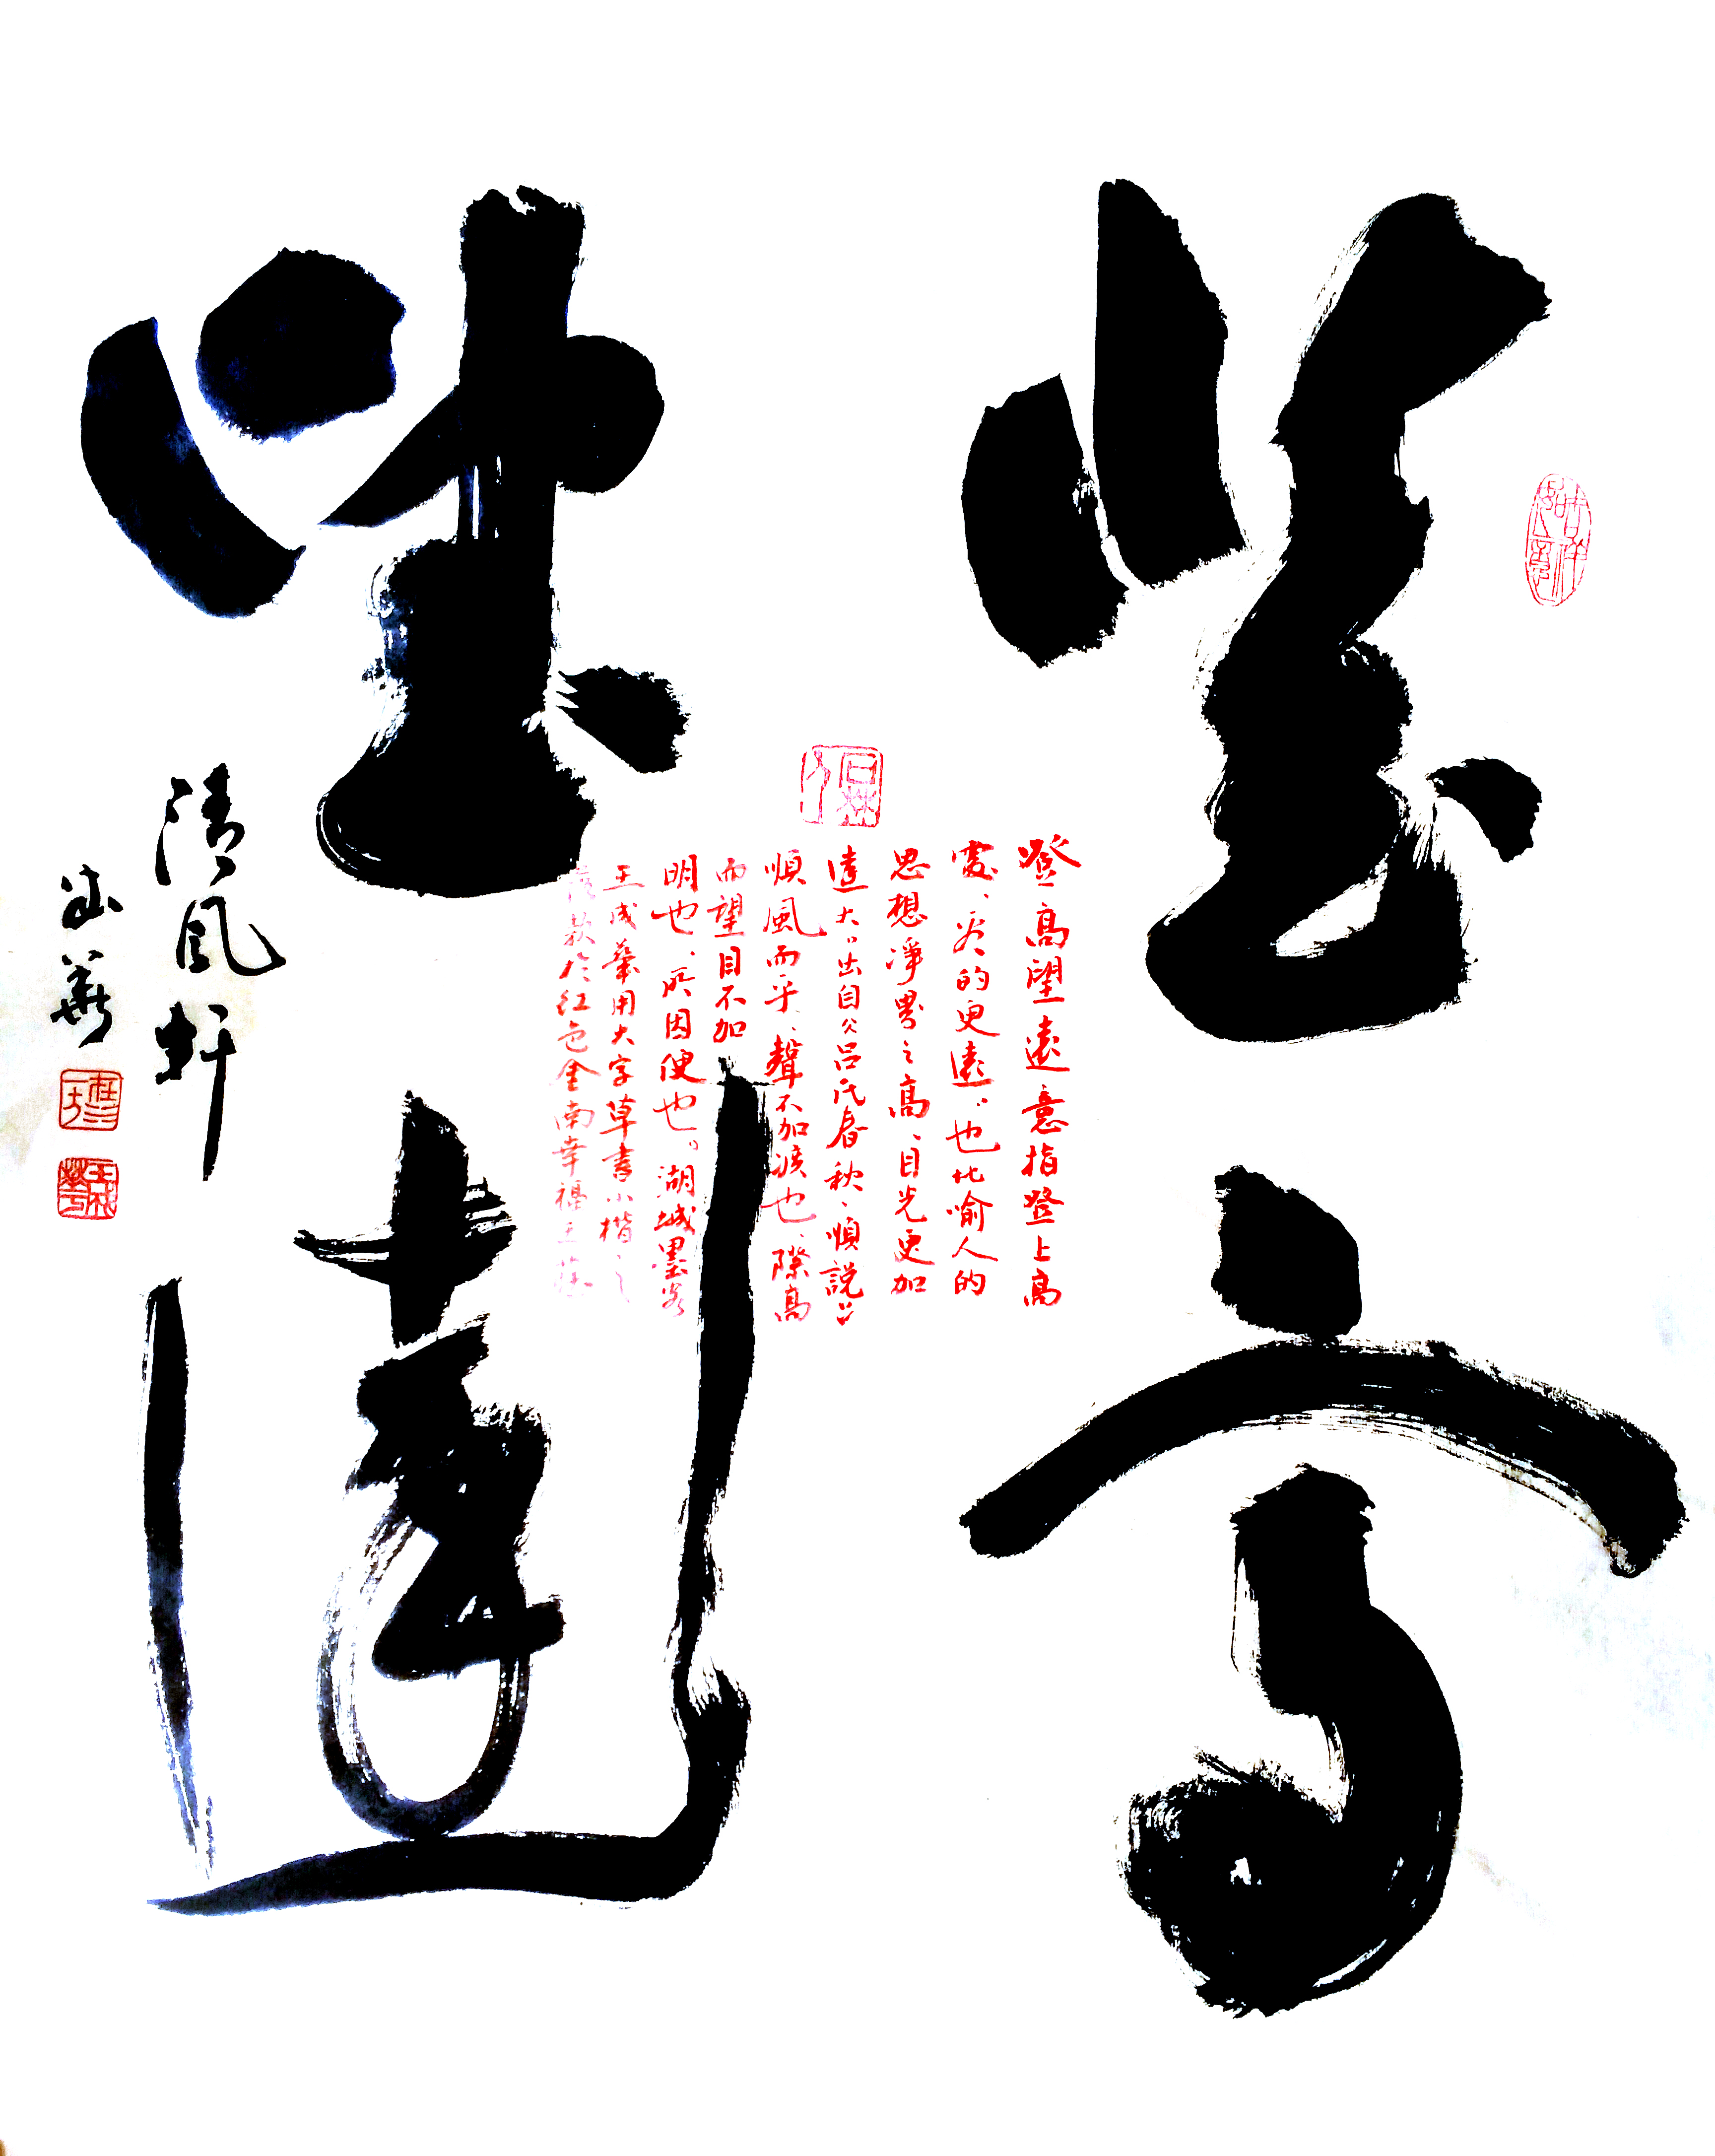 登高
望遠
登高望遠意指登上高
處、看的更遠。也比喻人的
思想凈界之高、目光更加
遠大。出自《呂氏春秋、順說》
順風而乎、聲不加疾也、際高
而望目不加
明也、所因便也。湖城墨客
王成華用大字草書小楷之
落款於紅色金南幸福王莊
清風軒
成華
吉祥如意